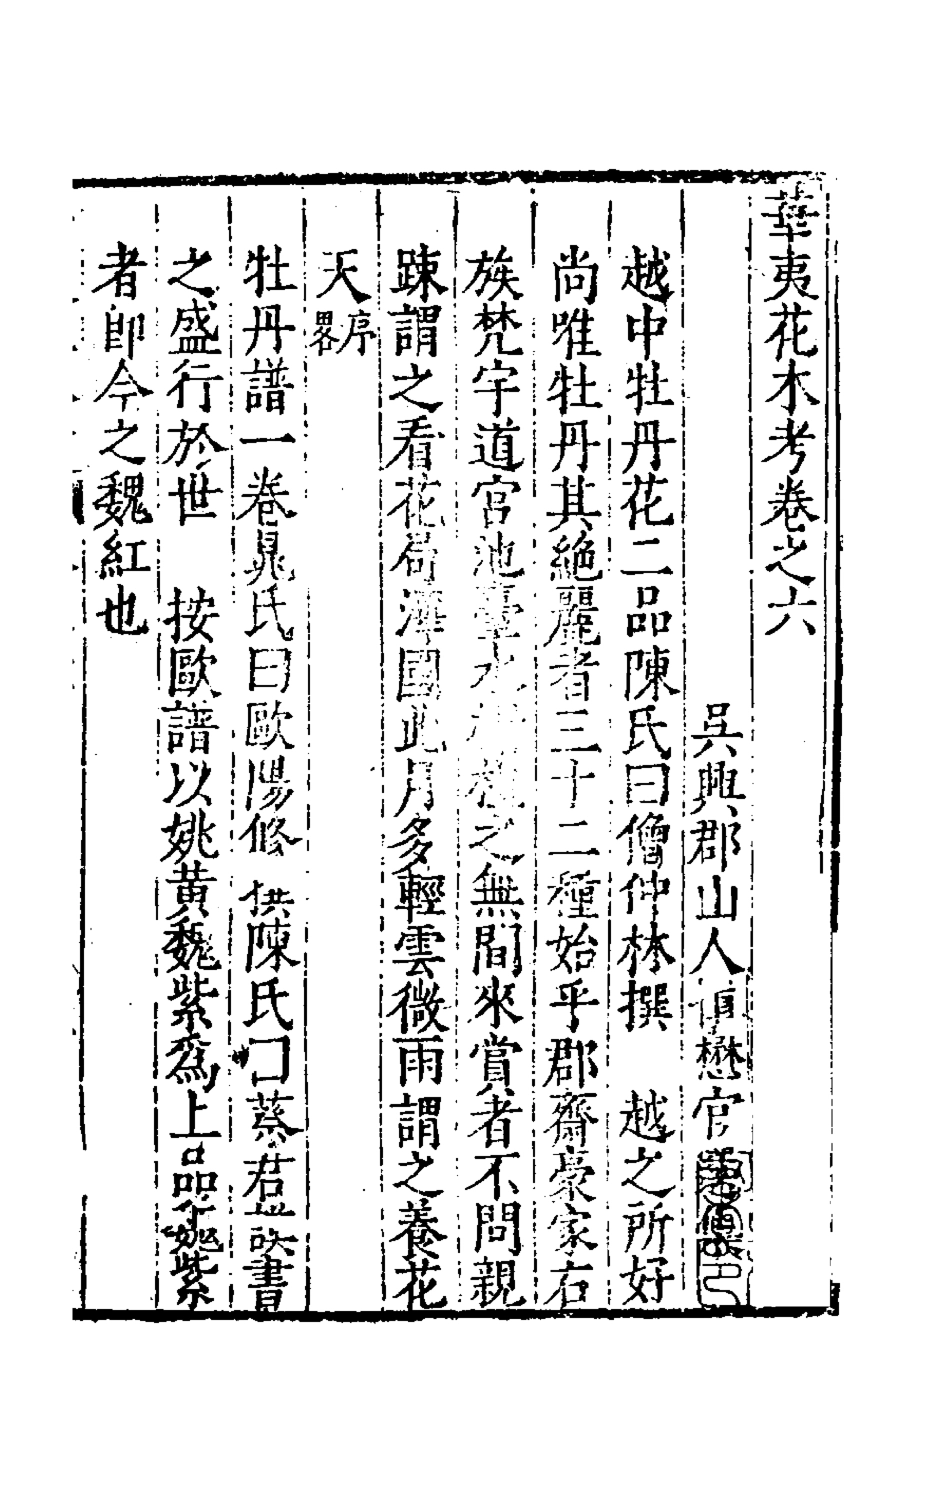 華夷花木考卷之六
吳興郡山人慎懋官
越中牡丹花二品陳氏曰僧仲林撰 越之所好
尚唯牡丹其絶麗者三十二種始乎郡齋豪家右
族梵宇道宮池臺水榭植之無間來賞者不問親
踈謂之看花局澤國此月多輕雲微雨謂之養花
天序畧
牡丹譜一卷晁氏曰歐陽修 陳氏曰蔡君謨書
之盛行於世 按歐譜以姚黃魏紫爲上品魏紫
者卽今之魏紅也